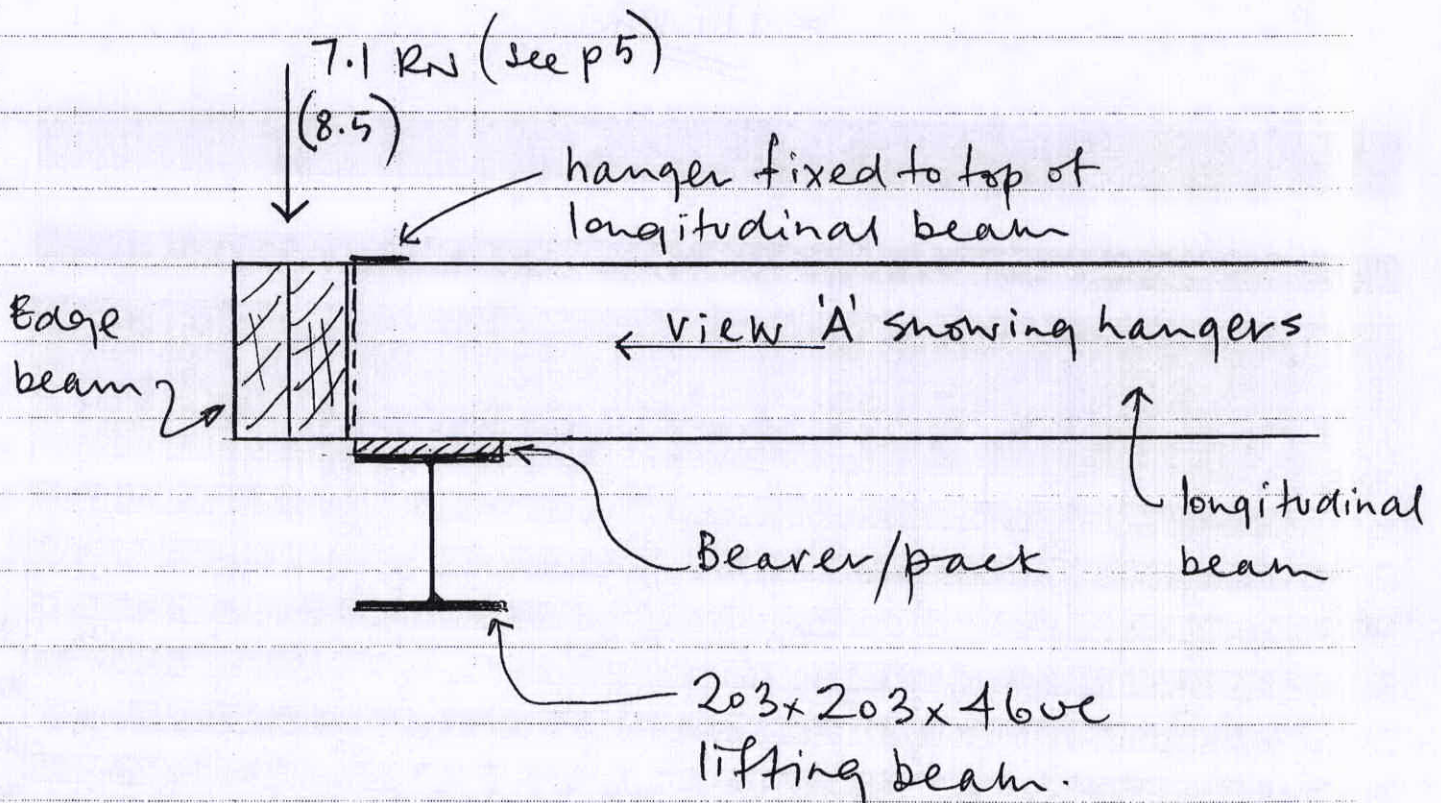 7.1 kN (see p5)
(8.5)
hanger fixed to top of
longitudinal beam
Edge
beam
view 'A' showing hangers
longitudinal
beam
Bearer/pack
203x203x46uc
lifting beam